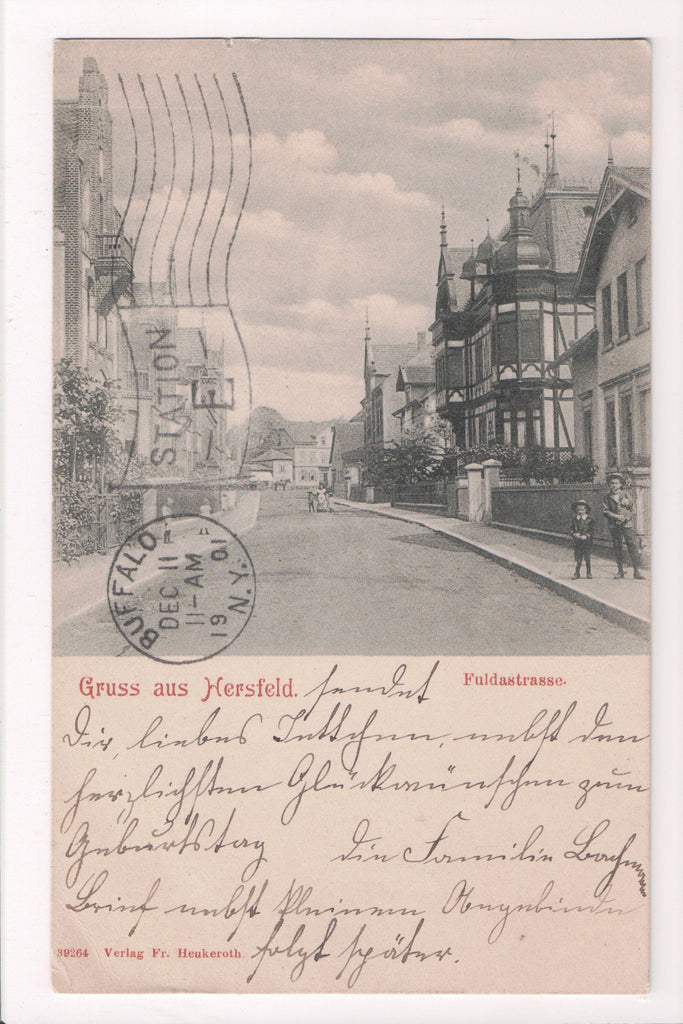 STATION
E
BUFFALO
DEC 11
11-AM
19 01
N.Y.
Gruss aus Hersfeld. sendet
Fuldastrasse.
Dir, liebes Jettchen, nebst den
herzlichsten Glückwünschen zum
Geburtstag die Familie
Brief nebst kleinem Angebinde
folgt später.
39264 Verlag Fr. Heukeroth